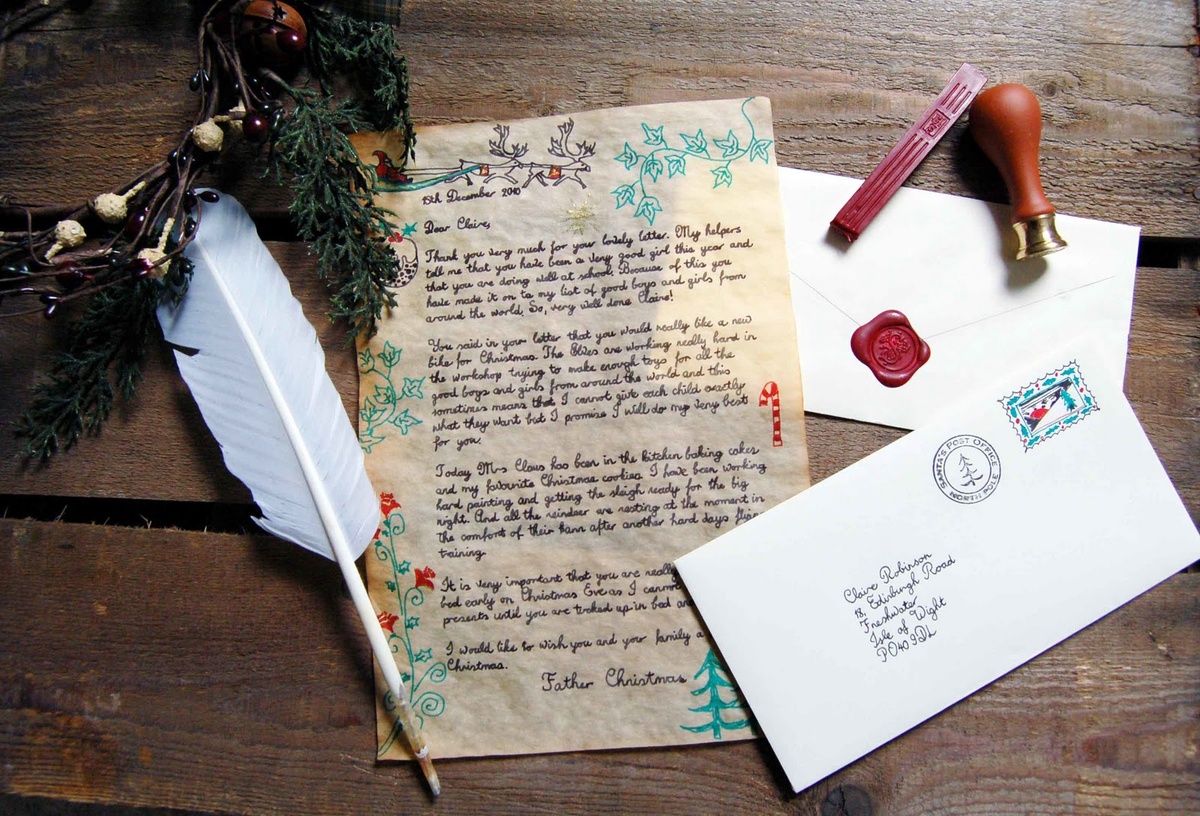 15th December 2010
Dear Claire,
Thank you very much for your lovely letter. My helpers
tell me that you have been a very good girl this year and
that you are doing well at school. Because of this you
have made it on to my list of good boys and girls from
around the world. So, very well done Claire!
You said in your letter that you would really like a new
bike for Christmas. The Elves are working really hard in
the workshop trying to make enough toys for all the
good boys and girls from around the world and this
sometimes means that I cannot give each child exactly
what they want but I promise I will do my very best
for you.
Today Mrs Claus has been in the kitchen baking cakes
and my favourite Christmas cookies. I have been working
hard painting and getting the sleigh ready for the big
night. And all the reindeer are resting at the moment in
the comfort of their barn after another hard days
training.
It is very important that you are really
bed early on Christmas Eve as I cannot
presents until you are tucked up in bed
I would like to wish you and your family a
Christmas.
Father Christmas
SANTA'S POST OFFICE
NORTH POLE
Claire Robinson
18, Edinburgh Road
Freshwater
Isle of Wight
PO40 9DL